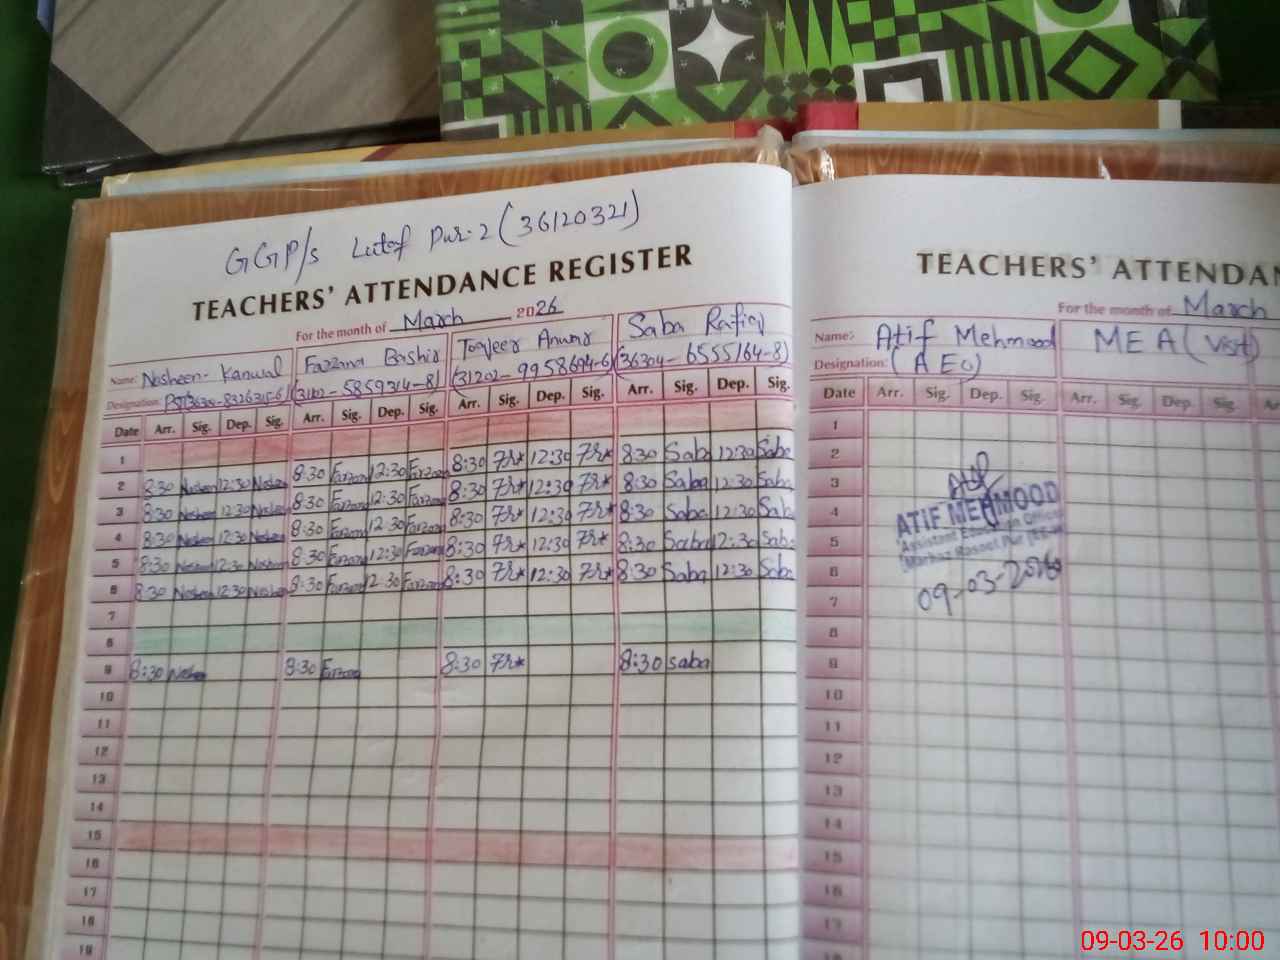 GGP/s Lutof Pur-2 (36120321)
TEACHERS' ATTENDANCE REGISTER
For the month of March 2026
Name: Nosheen Kanwal Farzana Bashir Toqeer Anwar Saba Rafiq
Designation: (31202-9958694-6) (36304-6555164-8)
Date Arr. Sig. Dep. Sig. Arr. Sig. Dep. Sig. Arr. Sig. Dep. Sig. Arr. Sig. Dep. Sig.
1
2 8:30 Nosheen 12:30 Nosheen 8:30 Farzana 12:30 Farzana 8:30 12:30 8:30 Saba 12:30 Saba
3 8:30 Nosheen 12:30 Nosheen 8:30 Farzana 12:30 Farzana 8:30 12:30 8:30 Saba 12:30 Saba
4 8:30 Nosheen 12:30 Nosheen 8:30 Farzana 12:30 Farzana 8:30 12:30 8:30 Saba 12:30 Saba
5 8:30 Nosheen 12:30 Nosheen 8:30 Farzana 12:30 Farzana 8:30 12:30 8:30 Saba 12:30 Saba
6 8:30 Nosheen 12:30 Nosheen 8:30 Farzana 12:30 Farzana 8:30 12:30 8:30 Saba 12:30 Saba
7
8
9 8:30 Nosheen 8:30 Farzana 8:30 8:30 Saba
10
11
12
13
14
15
16
17
18
19
TEACHERS' ATTENDAN
For the month of March
Name: Atif Mehmood MEA (Visit)
Designation: (AEO)
Date Arr. Sig. Dep. Sig. Arr. Sig. Dep. Sig.
1
2
3
4
5
6
7
8
9
10
11
12
13
14
15
16
17
18
Atif
ATIF MEHMOOD
Assistant Education Officer
Markaz Pur
09-03-2026
09-03-26 10:00